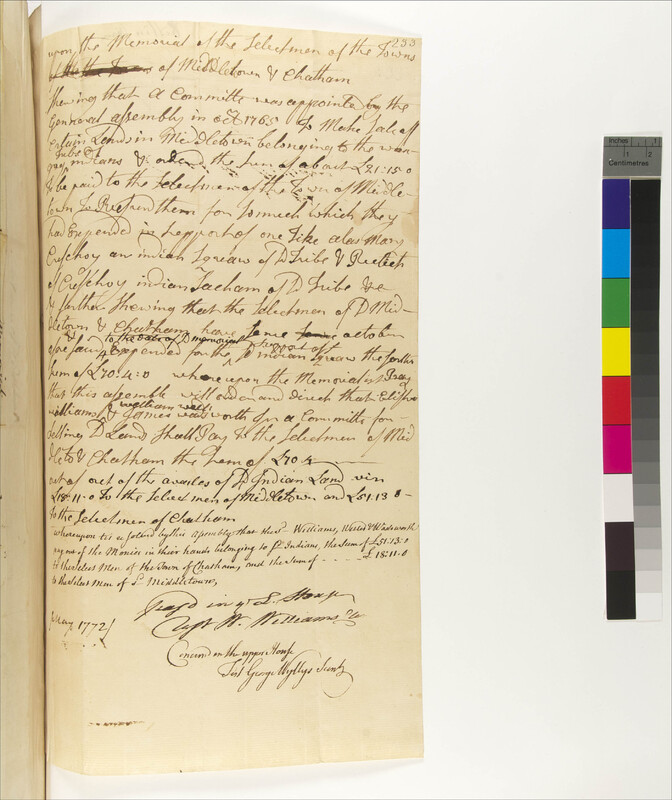 233
upon the Memorial of the Selectmen of the Towns
of Middletown & Chatham
Shewing that a Committe was appointed by the
General assembly in oct 1765 To Make Sale of
Certain Lands in Middletown belonging to the wan-
Tribe of
indians & orderd the Sum of about £21:15:0
To be paid to the Selectmen of the Town of Middle-
town To Refund them for so much which they
had Expended in Support of one
an indian Squaw of D Tribe & Relict
of indian of D Tribe &c
& further Shewing that the Selectmen of D Mid-
dletown & Chatham have Since october
& to the date of D memorial Support of
afore said Expended for the D indian Squaw the further
Sum of £70:4:0 whereupon the Memorialists Pray
that this assemble will order and direct that Elisha
william wells
williams & James wadsworth a Committe for
Selling D Land Shall Pay to the Selectmen of Mid
dleto & Chatham the Sum of £70:4
out of out of the availes of D Indian Land viz
£18-11-0 To the Selectmen of Middletown and £51:13 0-
to the Selectmen of Chatham
whereupon tis resolved by this Assembly that the sd Williams, Wells & Wadsworth
pay out of the Monies in their hands belonging to sd Indians, the Sum of £51:13:0
to the Select Men of the Town of Chatham, and the Sum of - - - - £18:11:0
to the Select Men of sd Middletown,
Pass'd in ye L. House
Test W. Williams Clr
May 1772
Concurd in the upper House
Test George Wyllys Secrety
Inches 1 2
Centimetres